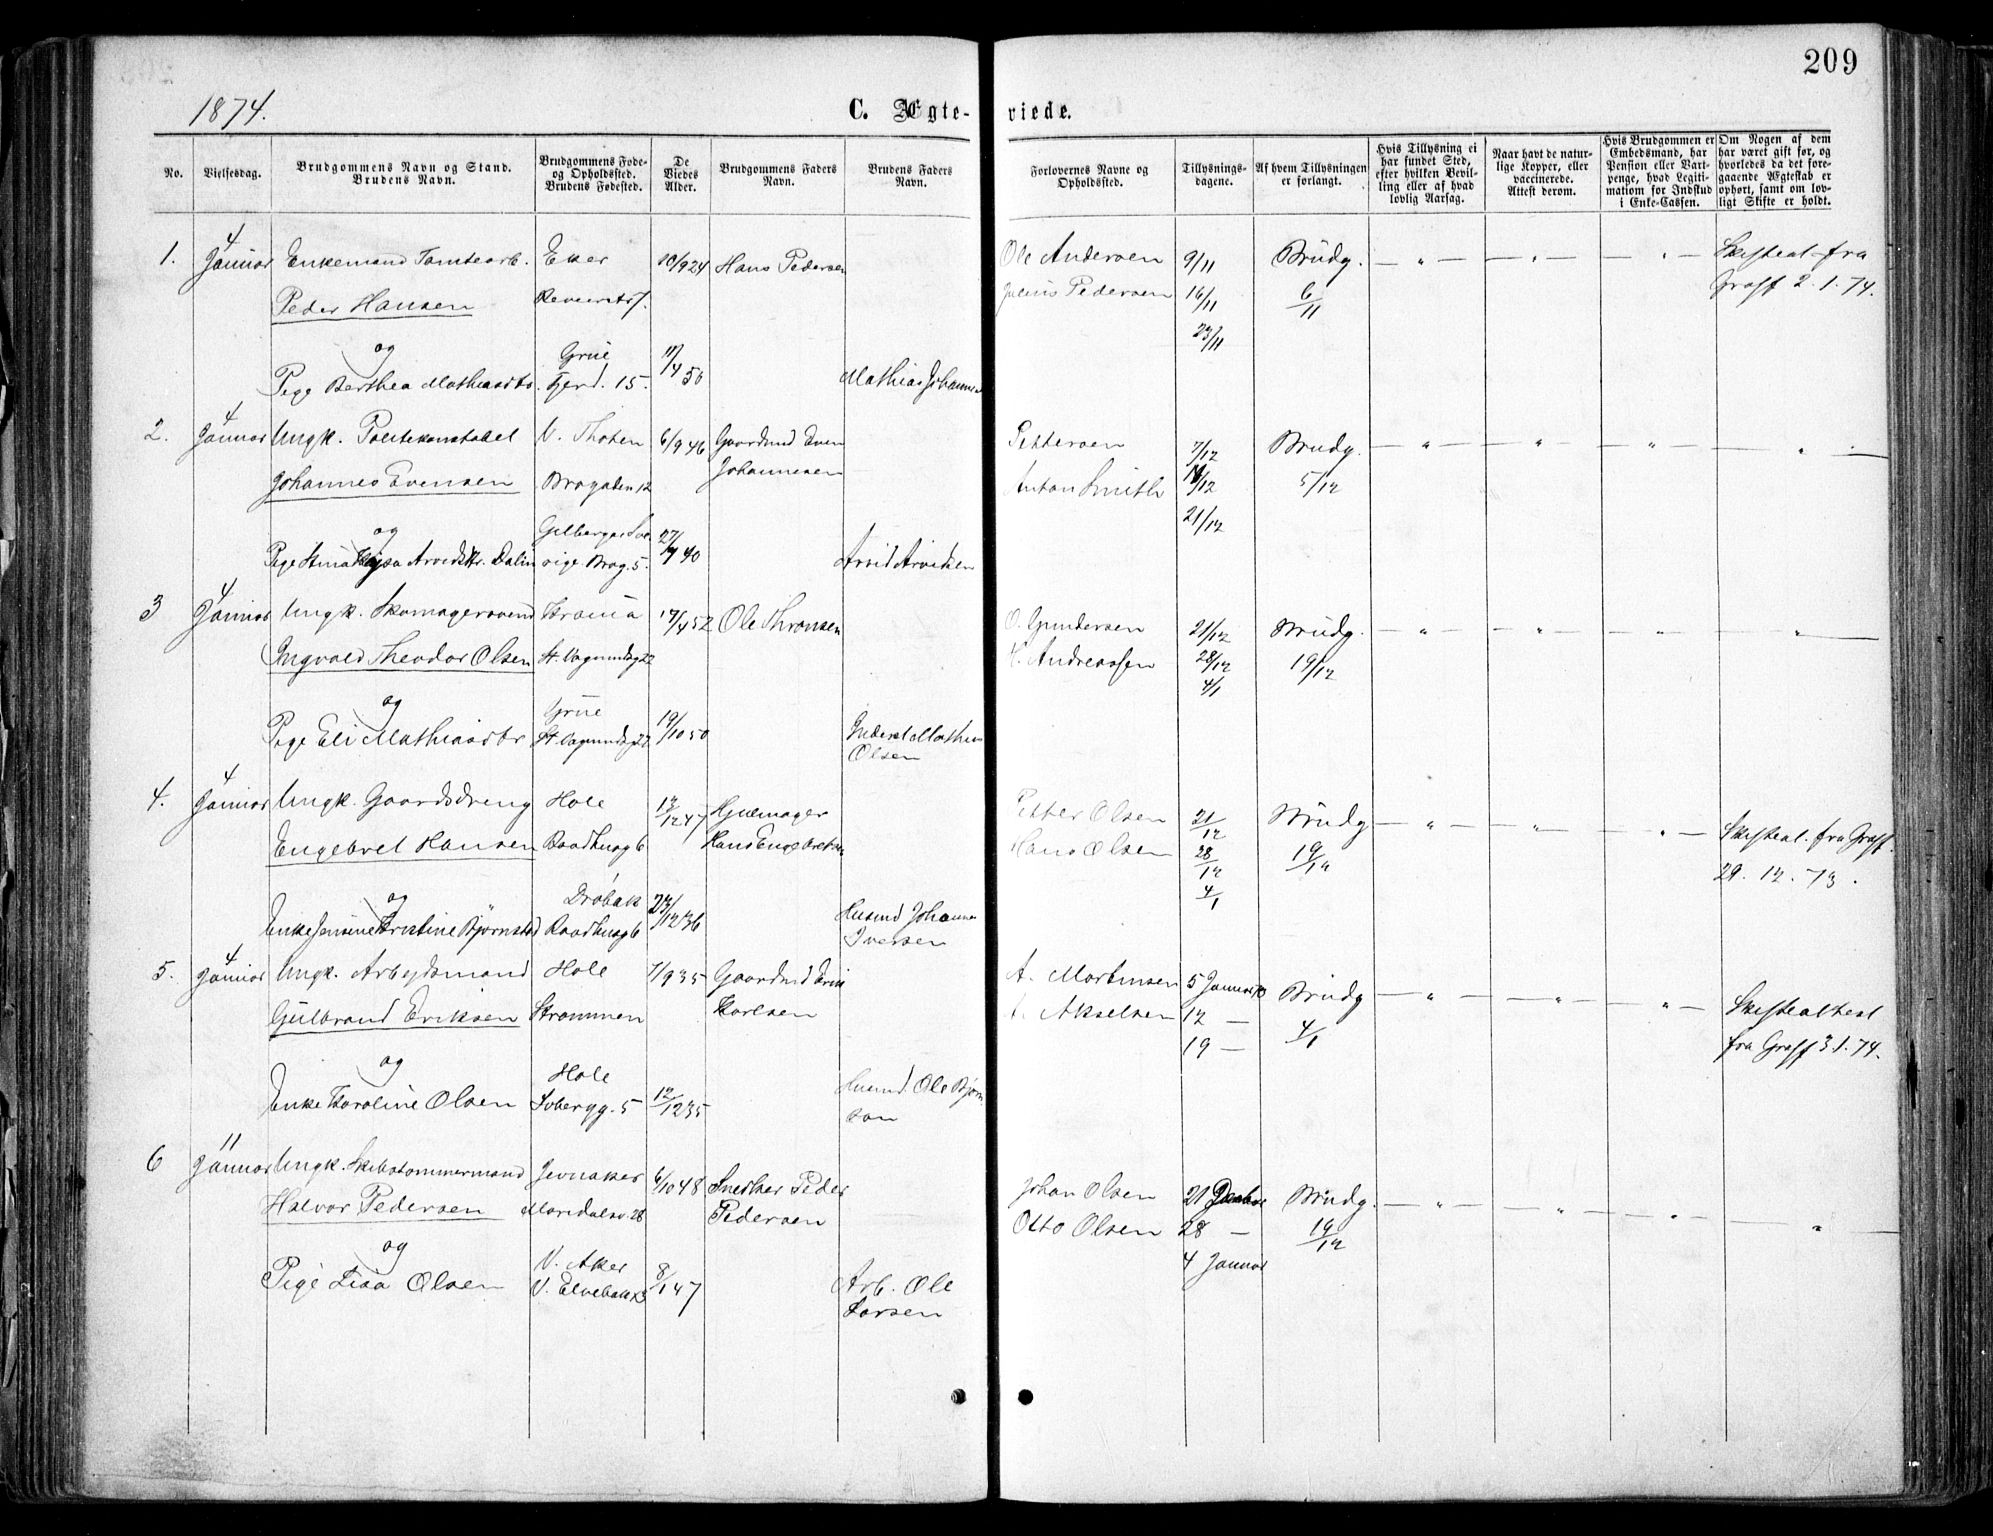 209
1874.
C. Ægte-
viede.
No.
Vielsesdag.
Brudgommens Navn og Stand.
Brudens Navn.
Brudgommens Føde-
og Opholdssted.
Brudens Fødested.
De
Viedes
Alder.
Brudgommens Faders
Navn.
Brudens Faders
Navn.
Forlovernes Navne og
Opholdssted.
Tillysnings-
dagene.
Af hvem Tillysningen
er forlangt.
Hvis Tillysning ei
har fundet Sted,
efter hvilken Bevil-
ling eller af hvad
lovlig Aarsag.
Naar havt de natur-
lige Kopper, eller
vaccinerede.
Attest derom.
Hvis Brudgommen er
Embedsmand, har
Pension eller Vart-
penge, hvad Legiti-
mation for Indskud
i Enke-Cassen.
Om Nogen af dem
har været gift før, og
hvorledes da det fore-
gaaende Ægteskab er
ophørt, samt om lov-
ligt Skifte er holdt.
1. 4 Januar Enkemand Tomtearb. Eker 10/9 24 Hans Pedersen Ole Andersen 9/11 Brudg. — " — — " — — " — Skifteat. fra
Peder Hansen Julius Pedersen 16/11 6/11 Graff 2.1.74.
23/11
og Grue 11/4 50
Pige Berthea Mathiasdtr. Fjerd. 15. Mathias Johannes
2. 4 Januar Ungk. Politekonstabel V. Thoten 6/9 46 Gaardmd Even Pettersen 7/12 Brudg. — " — — " — — " — — " —
Johannes Evensen Brogaden 12 Johannesen Anton Smith 14/12 5/12
21/12
og 27/
Pige Arvidsdtr. Dalin rige. Brog. 5. 40 Arvid Arvidsen
3 4 Januar Ungk. Skomagersvend Krania 17/4 52 Ole Thronsen O. Gundersen 21/12 Brudg. — " — — " — — " — — " —
Ingvald Theodor Olsen St. Vognmdsg 22 H. Andreassen 28/12 19/12
4/1
og Grue 19/10 50
Pige Eli Mathiasdtr St. Vognmdsg 22 Inderst Mathias
Olsen
4. 4 Januar Ungk. Gaardsdreng Hole 12/12 47 Hjulmager Petter Olsen 21/12 Brudg — " — — " — — " — Skifteat. fra Graff.
Engebret Hansen Raadhusg 6 Hans Engebretsen Hans Olsen 28/12 19/12 29.12.73.
4/1
og Drøbak 23/12 36
Enke Jensine Kristine Bjørnstad Raadhusg 6 Husmd Johannes
Iversen
5. 4 Januar Ungk. Arbejdsmand Hole 7/9 35 Gaardmd Erik A. Martinsen 5 Januar Brudg — " — — " — — " — Skifteattest
Gulbrand Eriksen Strømmen Karlsen A. Akselsen 12 — 4/1 fra Graff 3.1.74.
19 —
og Hole
Enke Karoline Olsen 5 12/12 35 Husmd. Ole Bjørn
son
6 11 Januar Ungk. Skibstømmermand Jevnaker 6/10 48 Snedker Peder Johan Olsen 21 Decbr Brudg. — " — — " — — " — — " —
Halvor Pedersen Maridalsv. 28 Pedersen Otto Olsen 28 — 19/12
4 Januar
og V. Aker 8/1 47
Pige Lisa Olsen V. Elvebak 23 Arb. Ole
Larsen